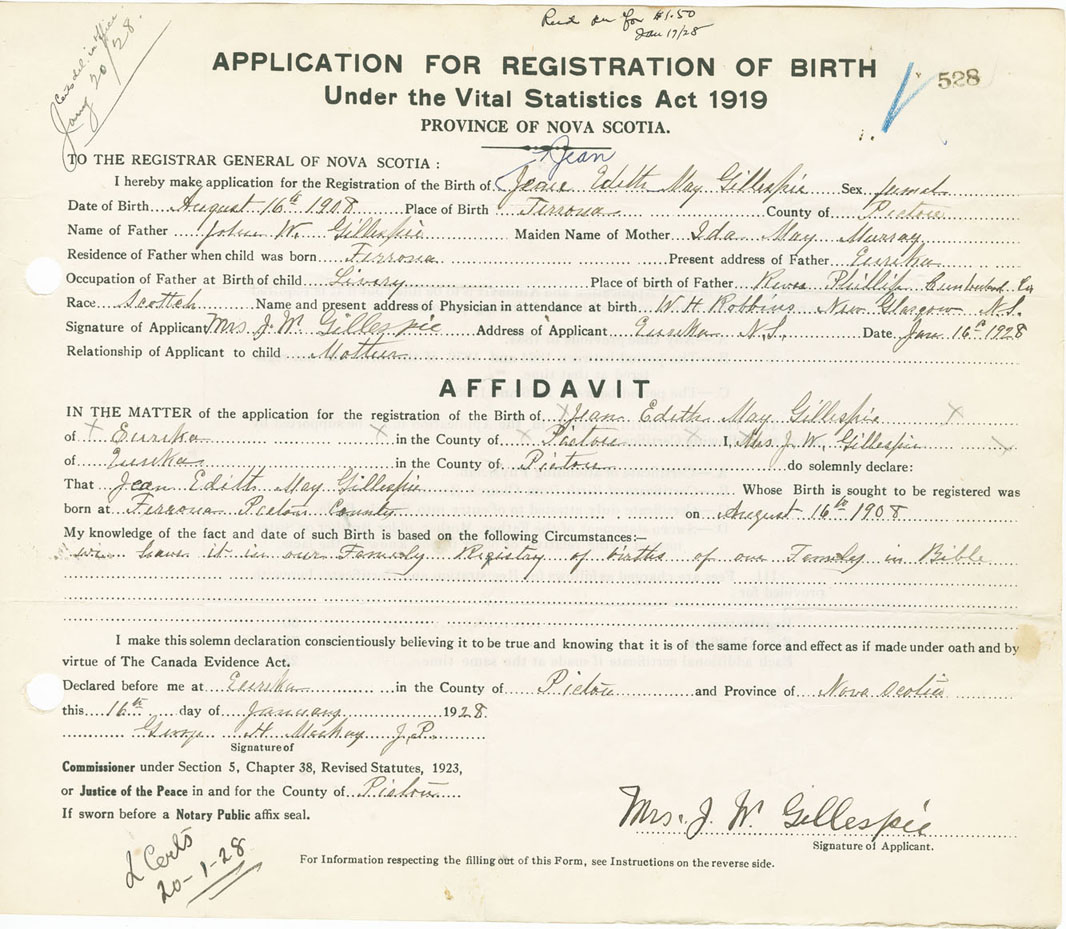 Recd on for $1.50
Jan 17/28
Certs del. in office
Jany 20/28
APPLICATION FOR REGISTRATION OF BIRTH
528
Under the Vital Statistics Act 1919
PROVINCE OF NOVA SCOTIA.
Jean
TO THE REGISTRAR GENERAL OF NOVA SCOTIA :
I hereby make application for the Registration of the Birth of Jean Edith May Gillespie Sex female
Date of Birth August 16th 1908 Place of Birth Ferrona County of Pictou
Name of Father John W. Gillespie Maiden Name of Mother Ida May Murray
Residence of Father when child was born Ferrona Present address of Father Eureka
Occupation of Father at Birth of child Livery Place of birth of Father River Phillip Cumberland Co
Race Scotch Name and present address of Physician in attendance at birth W. H. Robbins New Glasgow N.S.
Signature of Applicant Mrs. J. W. Gillespie Address of Applicant Eureka N.S. Date Jan 16th 1928
Relationship of Applicant to child Mother
AFFIDAVIT
IN THE MATTER of the application for the registration of the Birth of Jean Edith May Gillespie
of Eureka in the County of Pictou I, Mrs. J. W. Gillespie
of Eureka in the County of Pictou do solemnly declare:
That Jean Edith May Gillespie Whose Birth is sought to be registered was
born at Ferrona Pictou County on August 16th 1908
My knowledge of the fact and date of such Birth is based on the following Circumstances:—
we have it in our Family Registry of births of our Family in Bible
I make this solemn declaration conscientiously believing it to be true and knowing that it is of the same force and effect as if made under oath and by
virtue of The Canada Evidence Act.
Declared before me at Eureka in the County of Pictou and Province of Nova Scotia
this 16th day of January 1928.
George H. Mackay J.P.
Signature of
Commissioner under Section 5, Chapter 38, Revised Statutes, 1923,
or Justice of the Peace in and for the County of Pictou
If sworn before a Notary Public affix seal.
Mrs. J. W. Gillespie
Signature of Applicant.
2 Certs
20-1-28
For Information respecting the filling out of this Form, see Instructions on the reverse side.